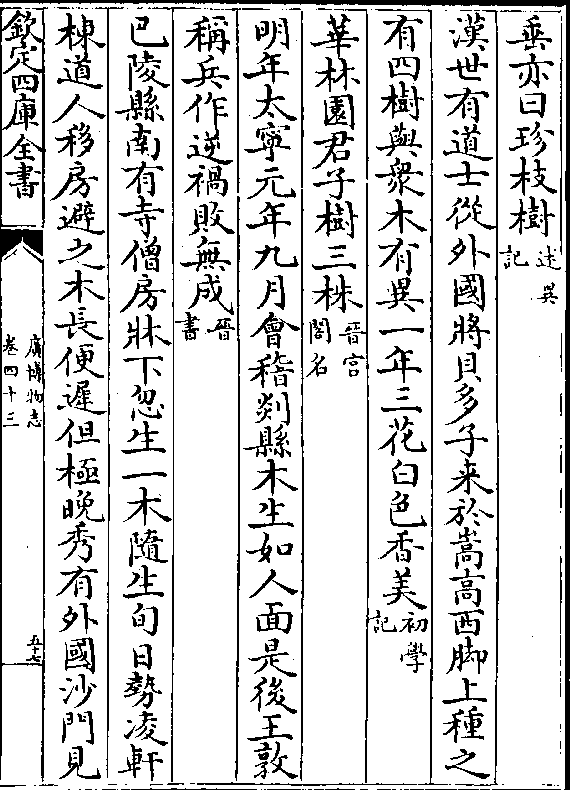 垂亦曰珍枝樹述異記
漢世有道士從外國將貝多子来於嵩高西脚上種之
有四樹與衆木有異一年三花白色香美初學記
華林園君子樹三株晉宮閣名
明年太寧元年九月會稽剡縣木生如人面是後王敦
稱兵作逆禍敗無成晉書
巴陵縣南有寺僧房牀下忽生一木隨生旬日勢凌軒
棟道人移房避之木長便遲但極晚秀有外國沙門見
欽定四庫全書
廣博物志
卷四十三
五十七